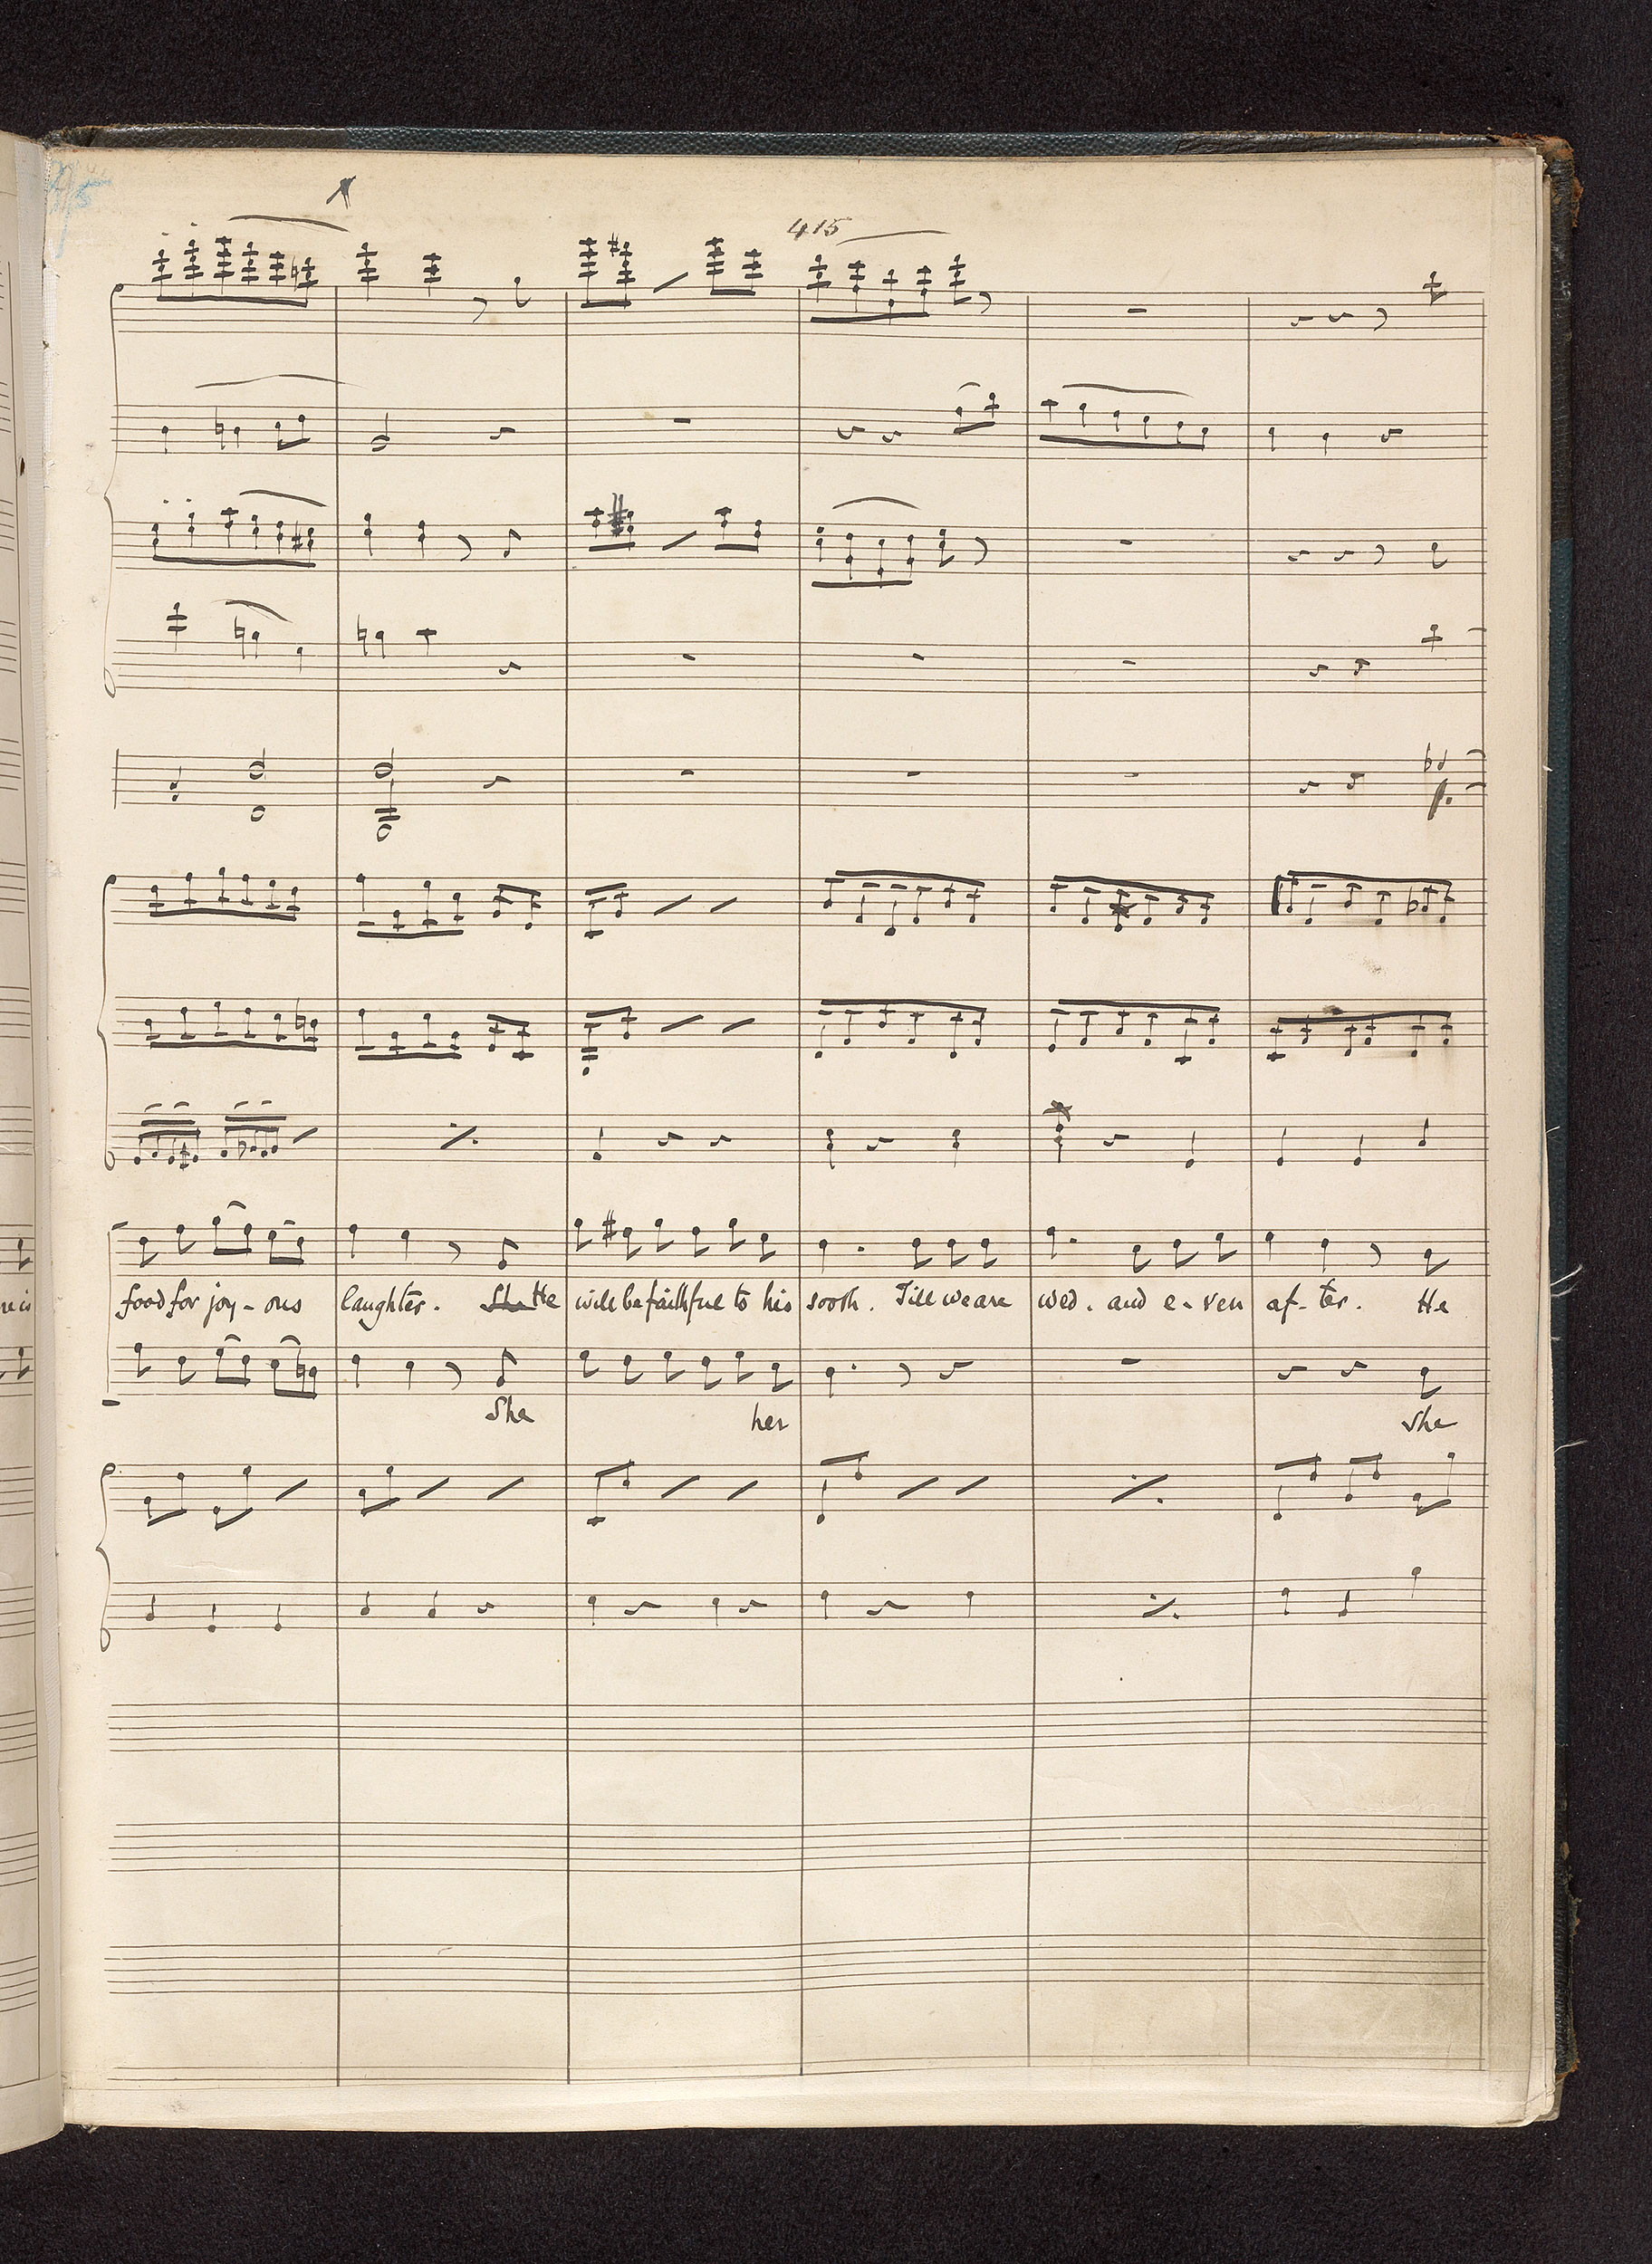 415
food for joy - ous laughter. She He will be faithful to his sooth. Till we are wed. and e - ven af - ter. He
She her she